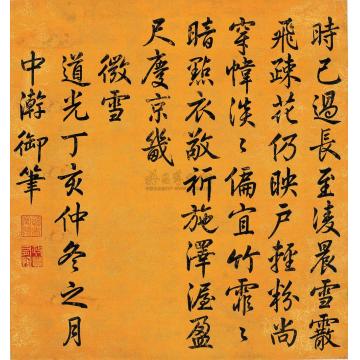 時已過長至凌晨雪霰
飛疎花仍映戶輕粉尚
穿幃淡〻偏宜竹霏〻
暗點衣敬祈施澤渥盈
尺慶京畿
微雪
道光丁亥仲冬之月
中澣御筆